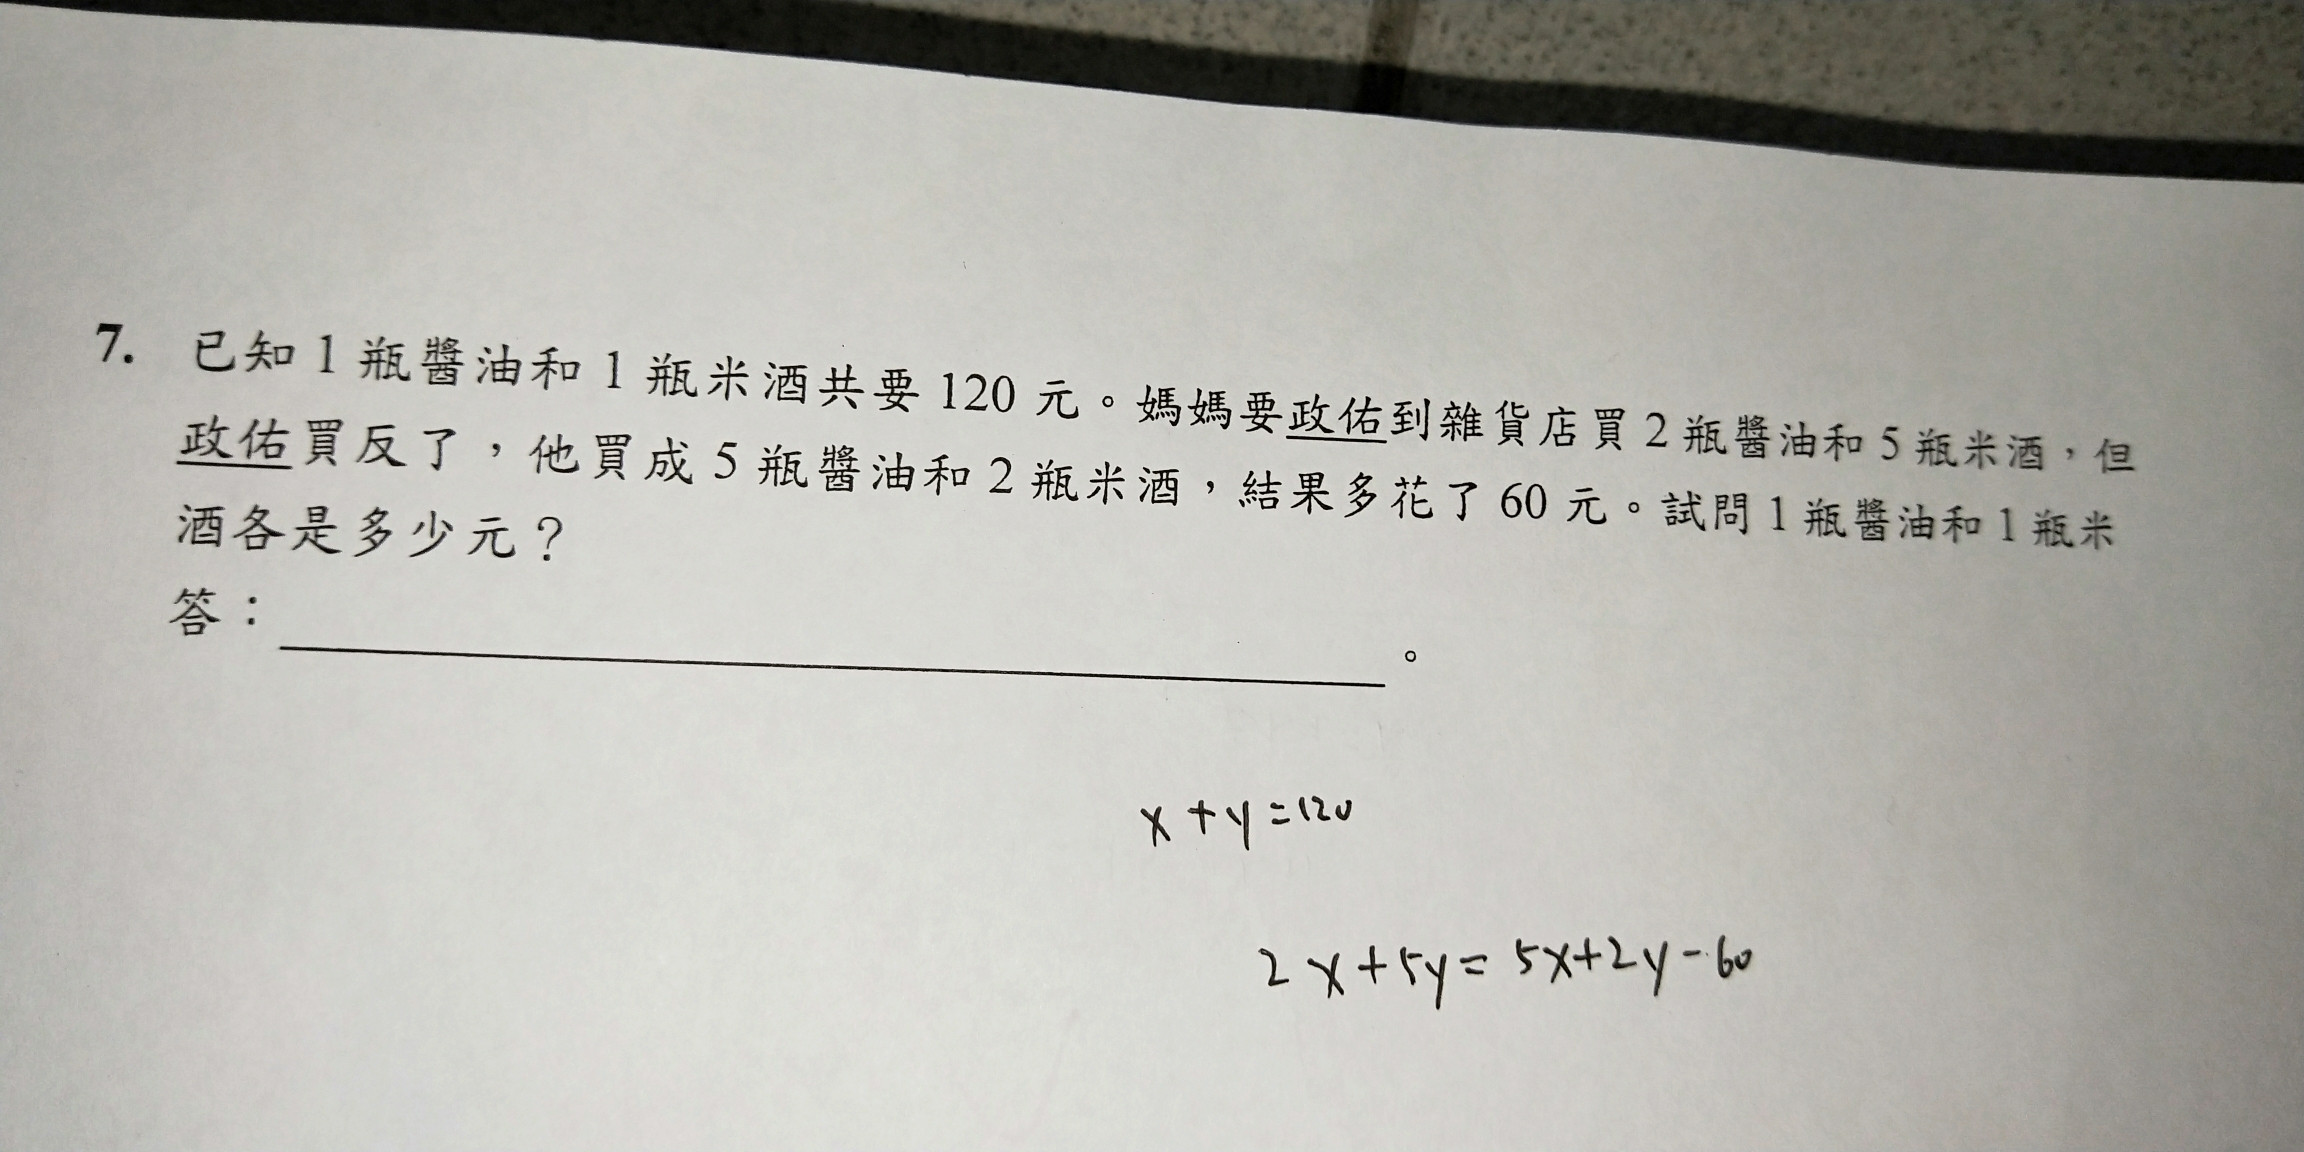 7. 已知1瓶醬油和1瓶米酒共要120元。媽媽要政佑到雜貨店買2瓶醬油和5瓶米酒,但
政佑買反了,他買成5瓶醬油和2瓶米酒,結果多花了60元。試問1瓶醬油和1瓶米
酒各是多少元?
答:                    。
x+y=120
2x+5y=5x+2y-60